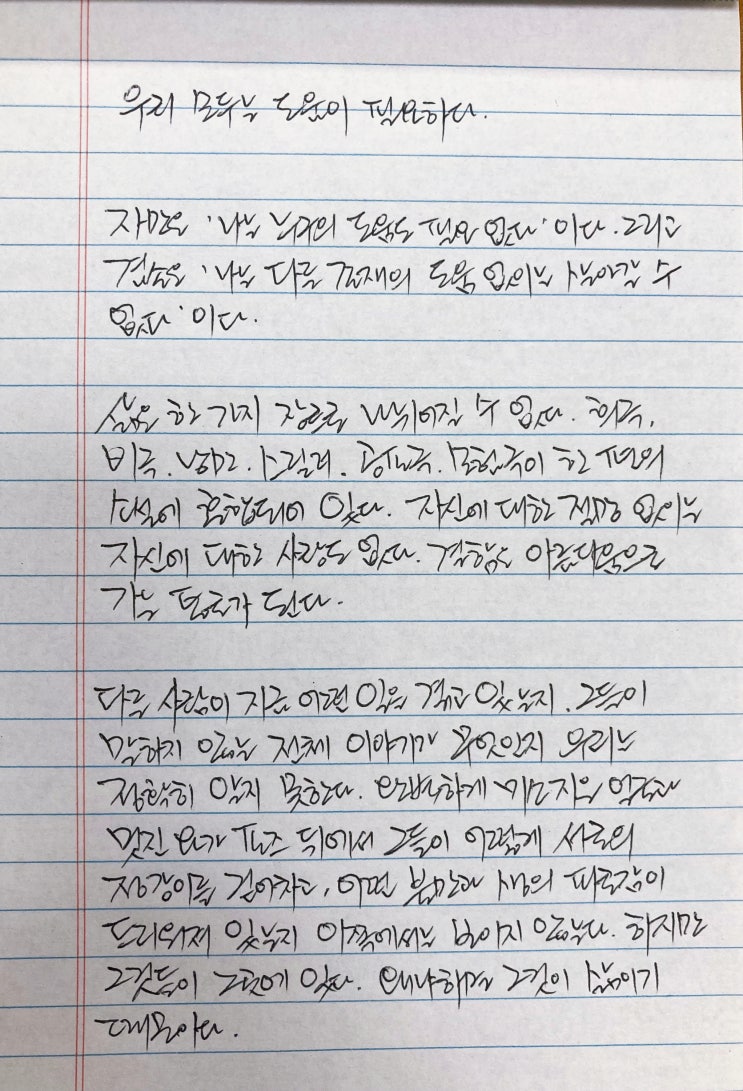 우리 모두는 도움이 필요하다.
자만은 '나는 누구의 도움도 필요 없다'이다. 그리고
겸손은 '나는 다른 존재의 도움 없이는 살아갈 수
없다'이다.
삶은 한 가지 장르로 나뉘어질 수 없다. 희극,
비극, 낭만, 스릴러, 공상극, 모험극이 한 편의
소설에 혼합되어 있다. 자신에 대한 절망 없이는
자신에 대한 사랑도 없다. 결함도 아름다움으로
가는 통로가 된다.
다른 사람이 지금 어떤 일을 겪고 있는지, 그들이
말하지 않는 전체 이야기가 무엇인지 우리는
정확히 알지 못한다. 완벽하게 미소지은 얼굴과
멋진 요가 포즈 뒤에서 그들이 어떻게 서로의
정강이를 걷어차고, 어떤 불안과 생의 피로감이
드리워져 있는지 이쪽에서는 보이지 않는다. 하지만
그것들이 그곳에 있다. 왜냐하면 그것이 삶이기
때문이다.